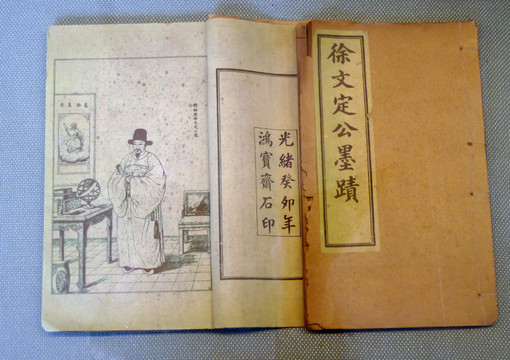 徐文定公墨蹟
光緒癸卯年
鴻寶齋石印